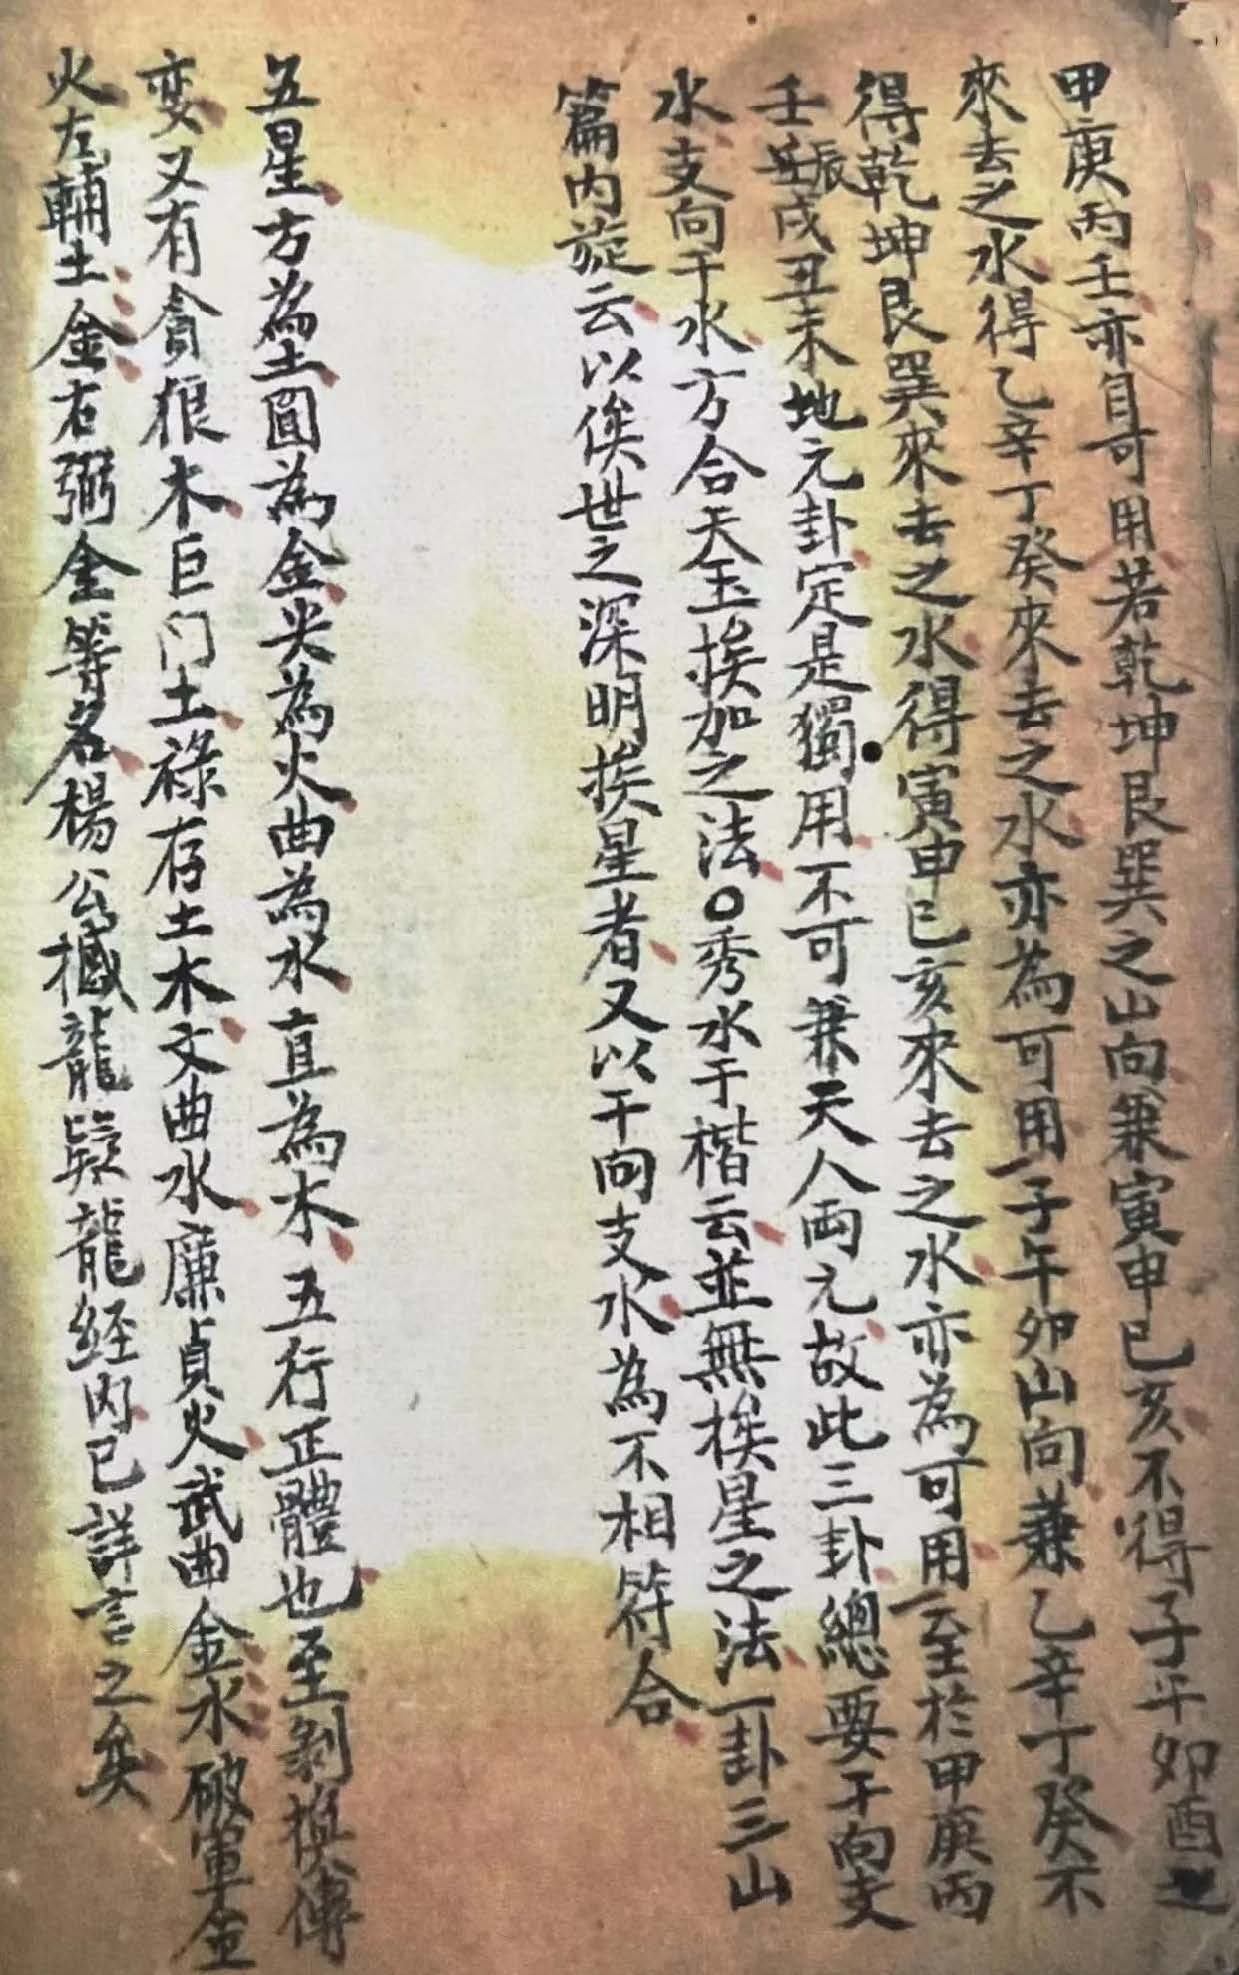 甲庚丙壬亦自可用若乾坤艮巽之山向兼寅申巳亥不得子午卯酉之
來去之水得乙辛丁癸來去之水亦為可用子午卯山向兼乙辛丁癸不
得乾坤艮巽來去之水得寅申巳亥來去之水亦為可用至於甲庚丙
壬辰戌丑未地元卦定是獨用不可兼天人兩元故此三卦總要干向支
水支向干水方合天玉挨加之法○秀水于楷云並無挨星之法一卦三山
篇內旋云以俟世之深明挨星者又以干向支水為不相符合
五星方為土圓為金尖為火曲為水直為木五行正體也至剝換傳
变又有貪狼木巨门土祿存土木文曲水廉貞火武曲金水破軍金
火左輔土金右弼金等名楊公撼龍疑龍经內已詳言之矣